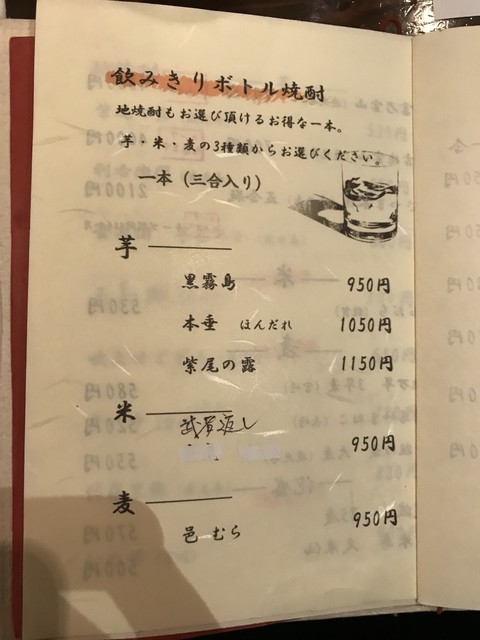 飲みきりボトル焼酎
地焼酎もお選び頂けるお得な一本。
芋・米・麦の3種類からお選びください。
一本（三合入り）
芋
黒霧島 950円
本垂 ほんだれ 1050円
紫尾の露 1150円
米
武者返し 950円
麦
邑 むら 950円